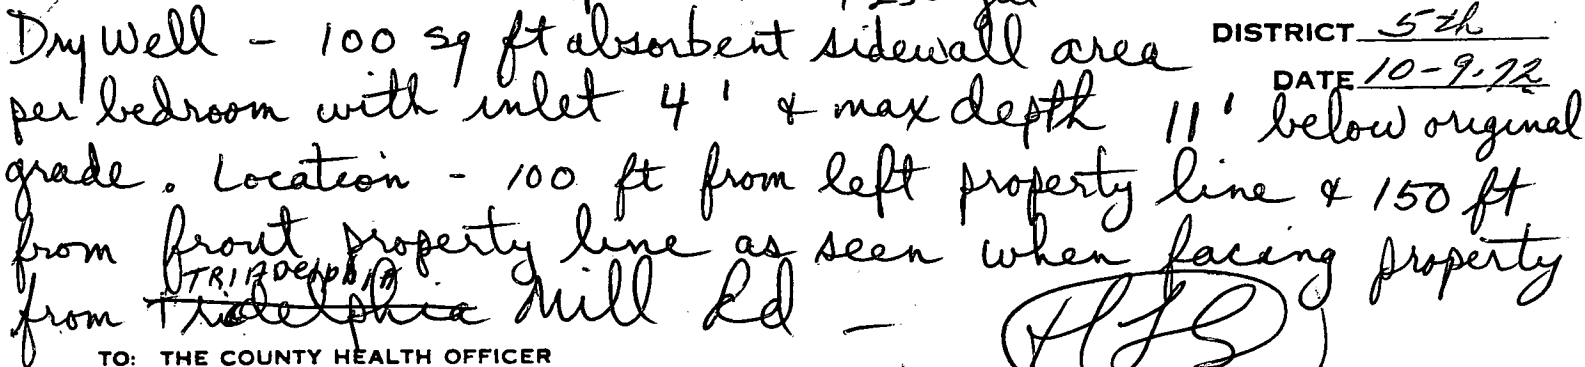 Dry Well - 100 sq ft absorbent sidewall area DISTRICT 5th
DATE 10-9-72
per bedroom with inlet 4' & max depth 11' below original
grade. Location - 100 ft from left property line & 150 ft
from front property line as seen when facing property
TRIADelphiA
from Tridelphia Mill Rd -
TO: THE COUNTY HEALTH OFFICER